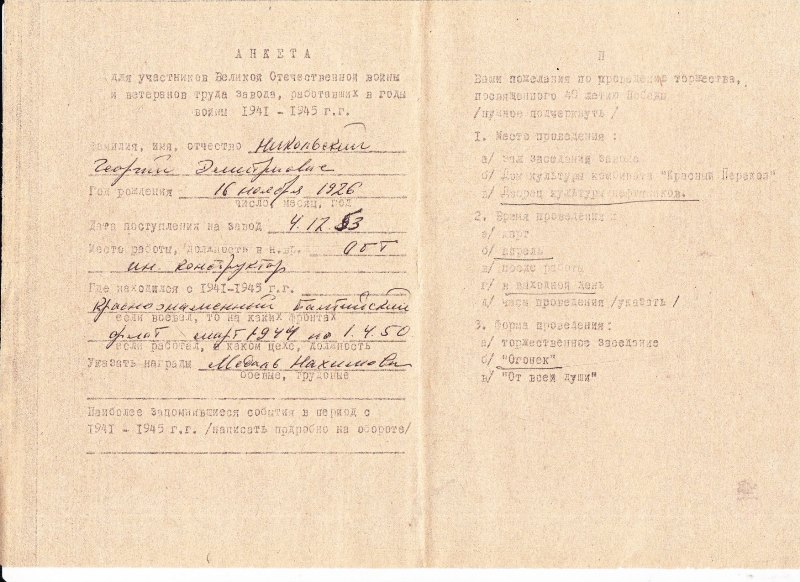 АНКЕТА
для участников Великой Отечественной войны
и ветеранов труда завода, работавших в годы
войны 1941 - 1945 г.г.
Фамилия, имя, отчество Никольский
Георгий Дмитриевич
Год рождения 16 ноября 1926
число, месяц, год
Дата поступления на завод 4.12.53
Место работы, должность в н.вр. ОГТ
ин. конструктор
Где находился с 1941-1945 г.г.
Краснознаменный Балтийский
если воевал, то на каких фронтах
флот март 1944 по 1.4.50
если работал, в каком цехе, должность
Указать награды Медаль Нахимова
боевые, трудовые
Наиболее запомнившиеся события в период с
1941 - 1945 г.г. /написать подробно на обороте/
П
Ваши пожелания по проведению торжества,
посвященного 40 летию Победы
/нужное подчеркнуть/
1. Место проведения :
а/ зал заседаний завода
б/ Дом культуры комбината "Красный Перекоп"
в/ Дворец культуры нефтяников.
2. Время проведения :
а/ март
б/ апрель
в/ после работы
г/ в выходной день
д/ часы проведения /указать/
3. Форма проведения:
а/ торжественное заседание
б/ "Огонек"
в/ "От всей души"